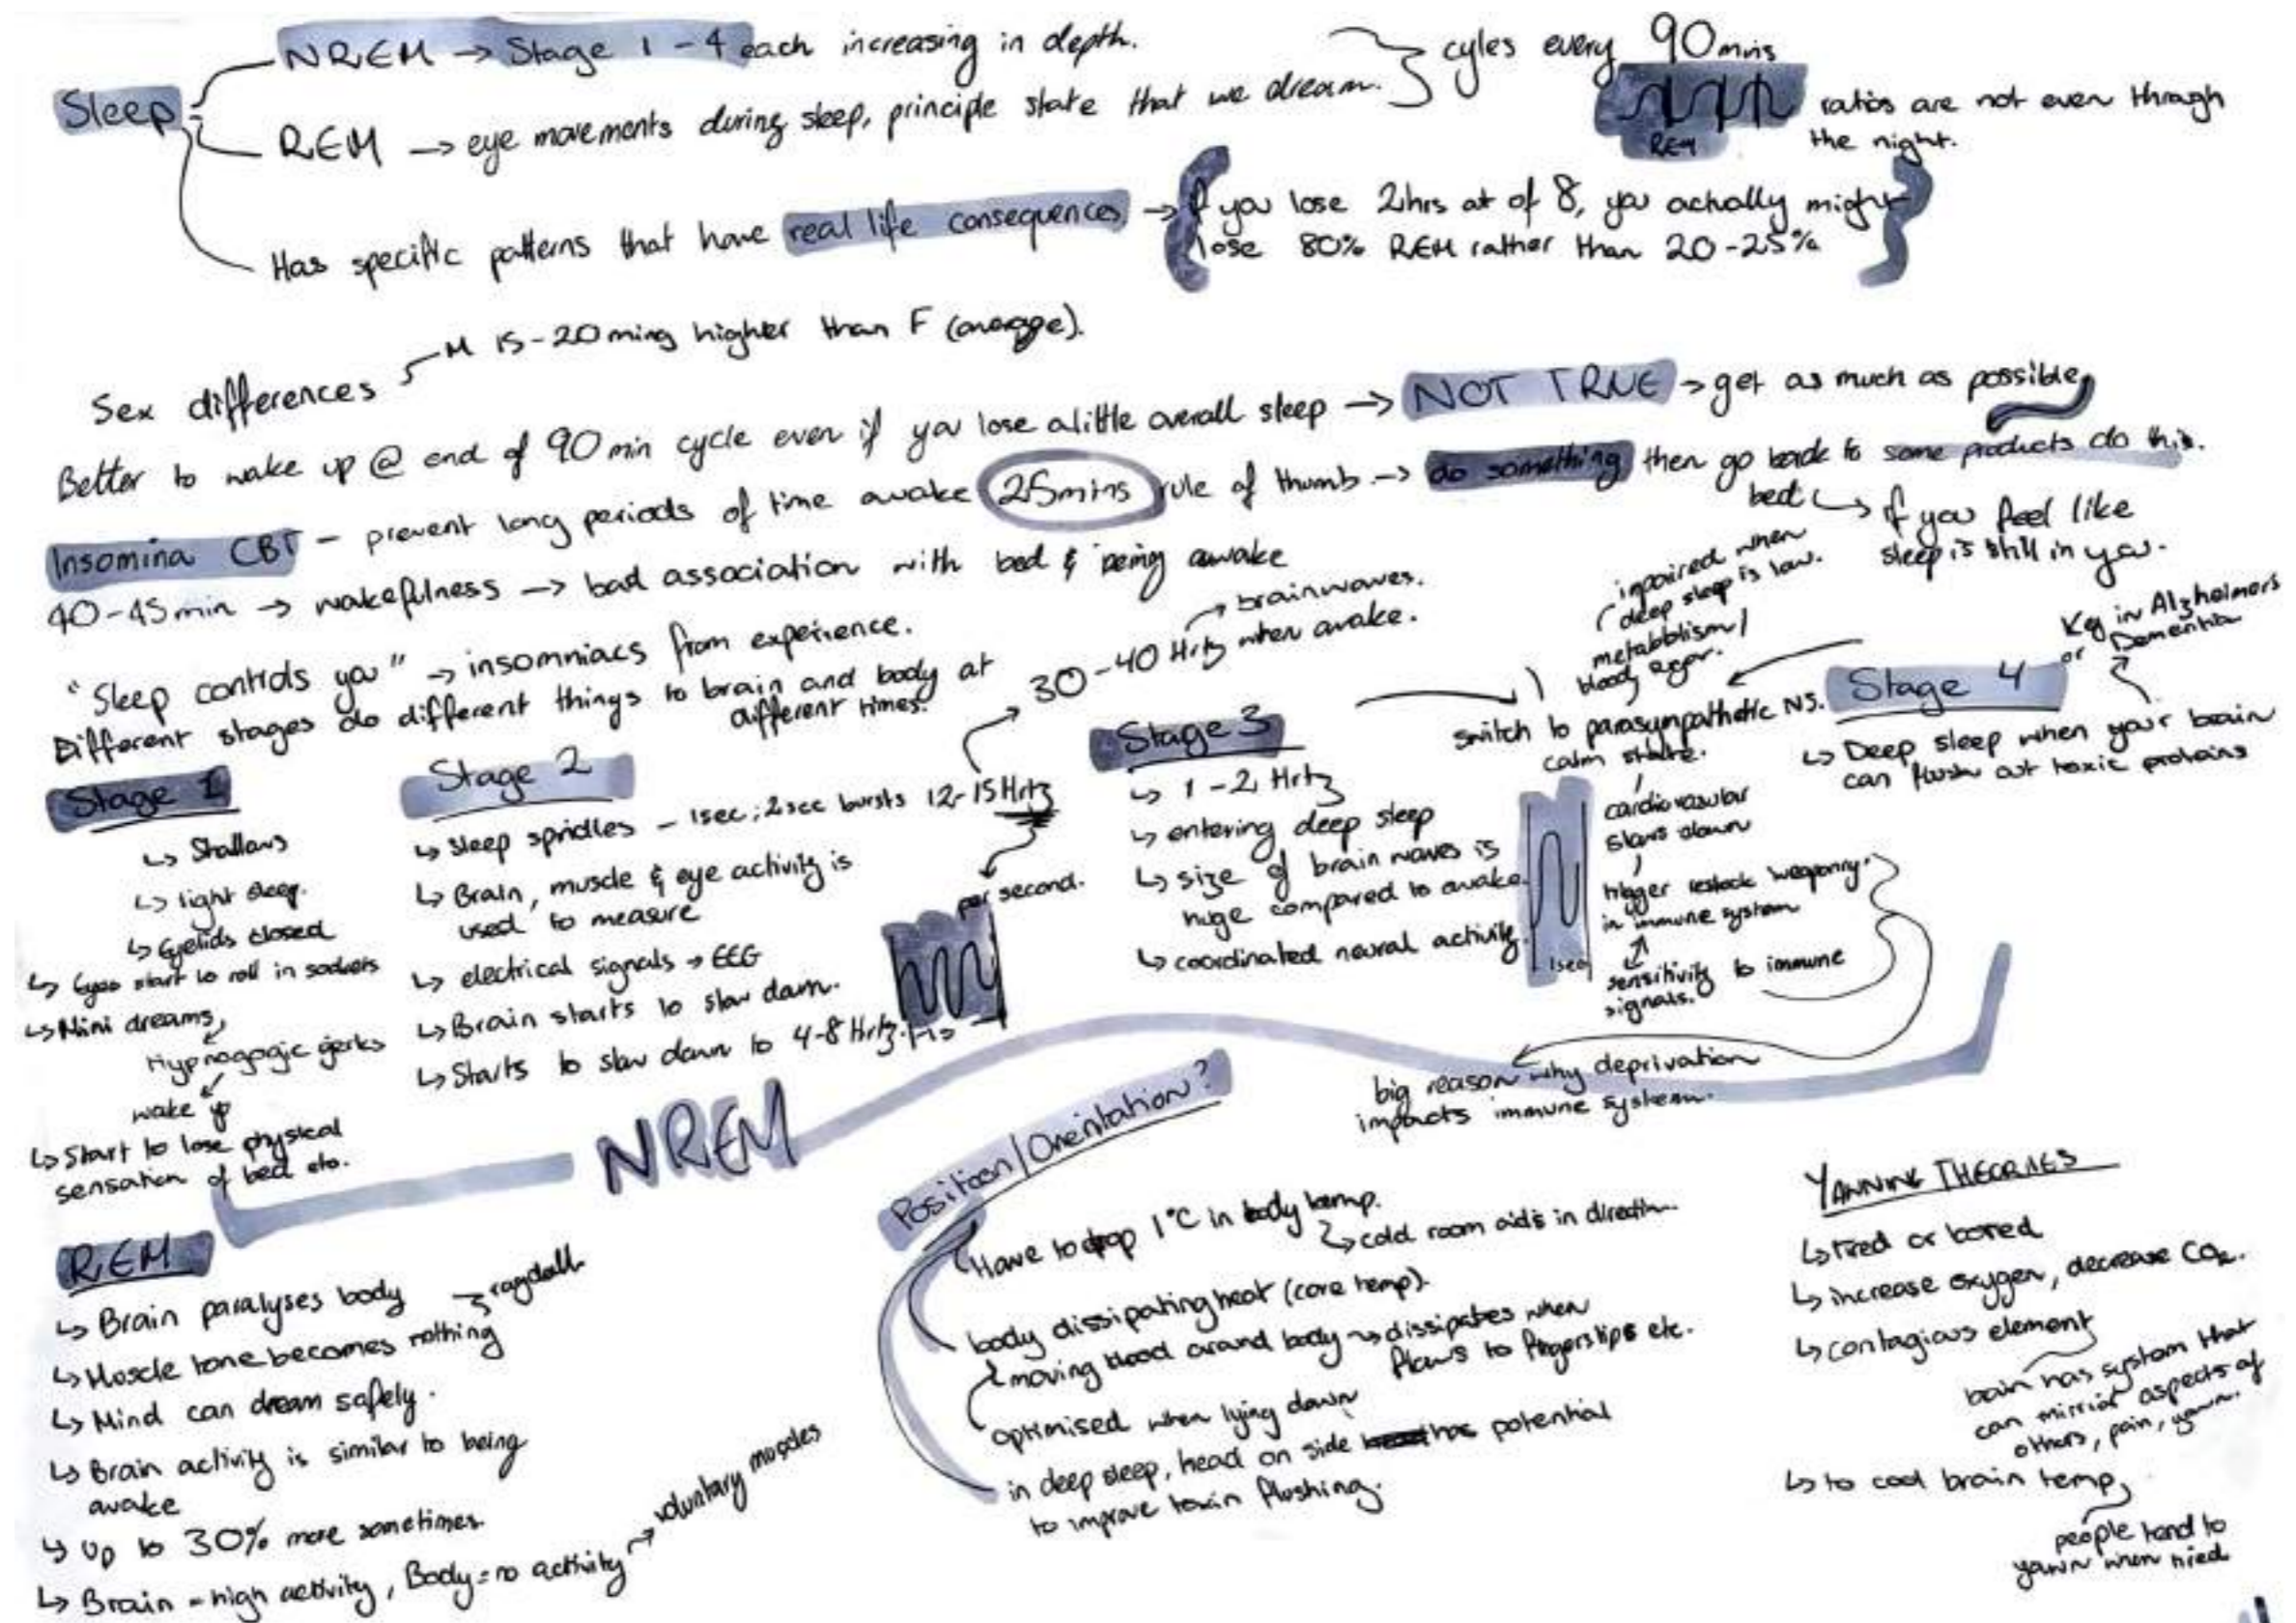 Sleep
NREM → Stage 1 - 4 each increasing in depth.
REM → eye movements during sleep, principle state that we dream.
cyles every 90mins
REM
ratios are not even through
the night.
Has specific patterns that have real life consequences →
If you lose 2hrs at of 8, you actually might
lose 80% REM rather than 20-25%
Sex differences
M 15-20 ming higher than F (average).
Better to wake up @ end of 90 min cycle even if you lose a little overall sleep → NOT TRUE → get as much as possible,
some products do this.
Insomina CBT - prevent long periods of time awake 25mins rule of thumb → do something then go back to
bed
↳ if you feel like
sleep is still in you.
40-45min → wakefulness → bad association with bed & being awake
"Sleep controls you" → insomniacs from experience.
Different stages do different things to brain and body at
different times.
Stage 1
↳ Shallows
↳ light sleep.
↳ Eyelids closed
↳ Eyes start to roll in sockets
↳ Mini dreams,
Hypnagogic jerks
wake up
↳ Start to lose physical
sensation of bed etc.
Stage 2
↳ sleep spindles - 1sec; 2sec bursts 12-15Hrtz
→ 30-40 Hrtz when awake.
→ brainwaves.
per second.
↳ Brain, muscle & eye activity is
used to measure
↳ electrical signals → EEG
↳ Brain starts to slow down.
↳ Starts to slow down to 4-8 Hrtz.
1s
Stage 3
↳ 1-2 Hrtz
↳ entering deep sleep
↳ size of brain waves is
huge compared to awake.
↳ coordinated neural activity.
1sec
impaired when
deep sleep is low.
metabolism/
switch to parasympathetic NS.
calm state.
cardiovasular
slows down
trigger restock weaponry
in immune system
sensitivity to immune
signals.
big reason why deprivation
impacts immune system.
Stage 4
↳ Deep sleep when your brain
can flush out toxic proteins
Key in Alzheimers
or Dementia
NREM
REM
↳ Brain paralyses body
↳ Muscle tone becomes nothing
ragdoll
↳ Mind can dream safely.
↳ Brain activity is similar to being
awake
↳ Up to 30% more sometimes.
↳ Brain = high activity, Body = no activity
→ voluntary muscles
Position/Orientation?
Have to drop 1°C in body temp.
↳ cold room aids in
body dissipating heat (core temp).
moving blood around body → dissipates when
flows to fingerstips etc.
optimised when lying down
in deep sleep, head on side has potential
to improve toxin flushing.
YAWNING THEORIES
↳ tired or bored
↳ increase oxygen, decrease CO2.
↳ contagious element
brain has system that
can mirror aspects of
others, pain, yawn.
↳ to cool brain temp,
people tend to
yawn when tired